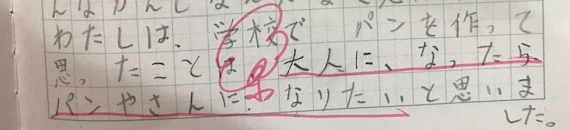 わたしは、学校で パンを作って
思ったことは、大人に、なったら
パンやさんに、なりたいと思いま
した。